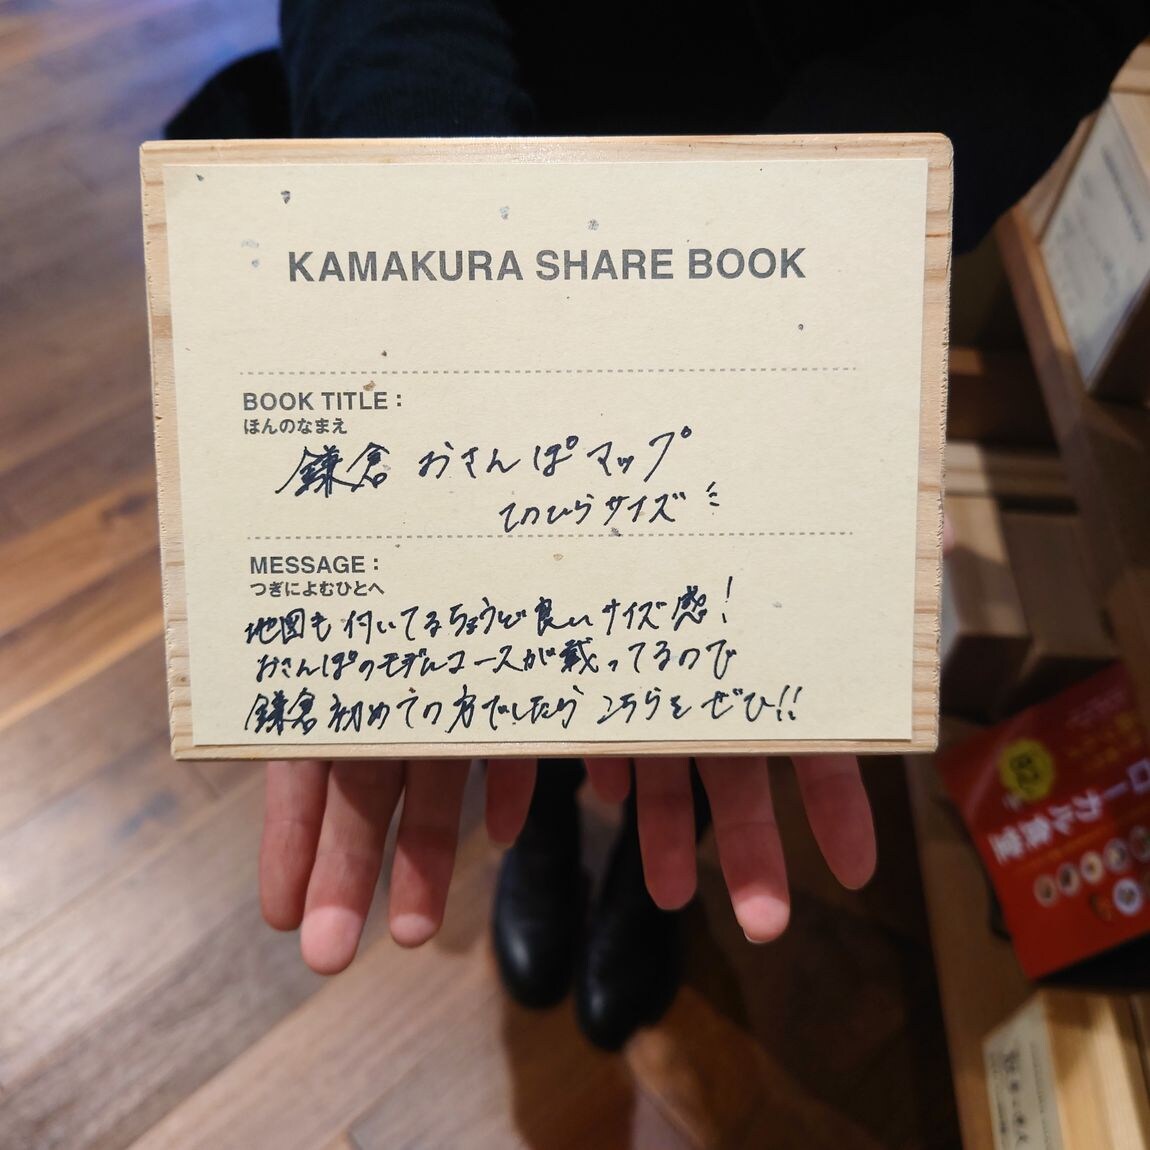 KAMAKURA SHARE BOOK
BOOK TITLE：
ほんのなまえ
鎌倉 おさんぽマップ
てのひらサイズ
MESSAGE：
つぎによむひとへ
地図も付いてるちょうど良いサイズ感！
おさんぽのモデルコースが載ってるので
鎌倉初めての方でしたら こちらを ぜひ!!
ローカル食堂